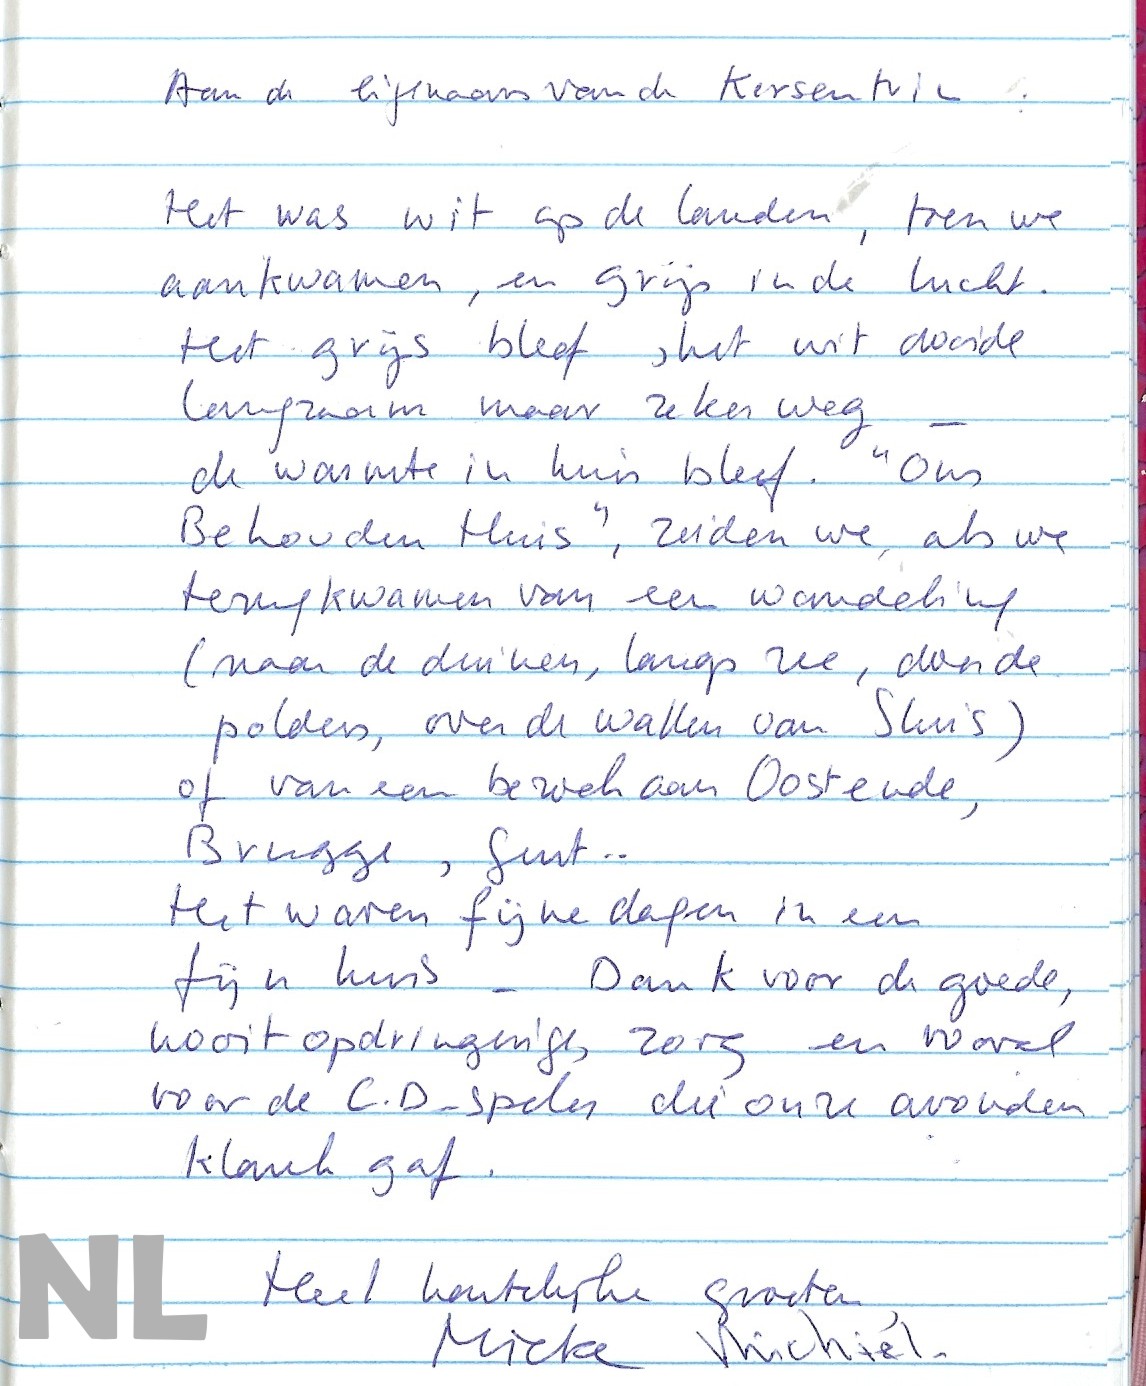 Aan de eigenaars van de Kersentuin
Het was wit op de landen, toen we
aankwamen, en grijs in de lucht.
Het grijs bleef, het wit dooide
langzaam maar zeker weg _
de warmte in huis bleef. "Ons
Behouden Huis", zeiden we, als we
terugkwamen van een wandeling
(naar de duinen, langs zee, door de
polders, over de wallen van Sluis)
of van een bezoek aan Oostende,
Brugge, Gent..
Het waren fijne dagen in een
fijn huis _ Dank voor de goede,
nooit opdringerige, zorg en vooral
voor de C.D-speler die onze avonden
klank gaf.
NL
Heel hartelijke groeten,
Mieke Michiel.